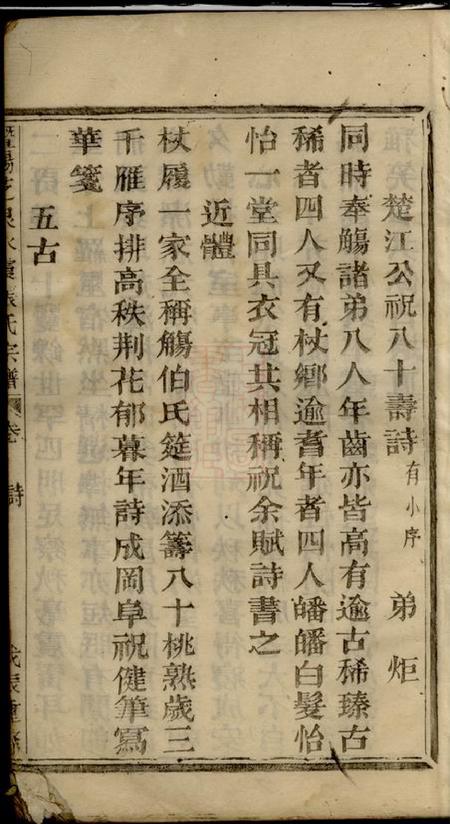 楚江公祝八十壽詩 有小序 弟炬
同時奉觴諸弟八人年齒亦皆高有逾古稀臻古
稀者四人又有杖鄉逾耆年者四人皤皤白髮怡
怡一堂同具衣冠共相稱祝余賦詩書之
近體
杖履一家全稱觴伯氏筵酒添籌八十桃熟歲三
千雁序排高秩荆花郁暮年詩成岡阜祝健筆寫
華箋
五古
暨陽 氏宗譜 卷 詩 重修